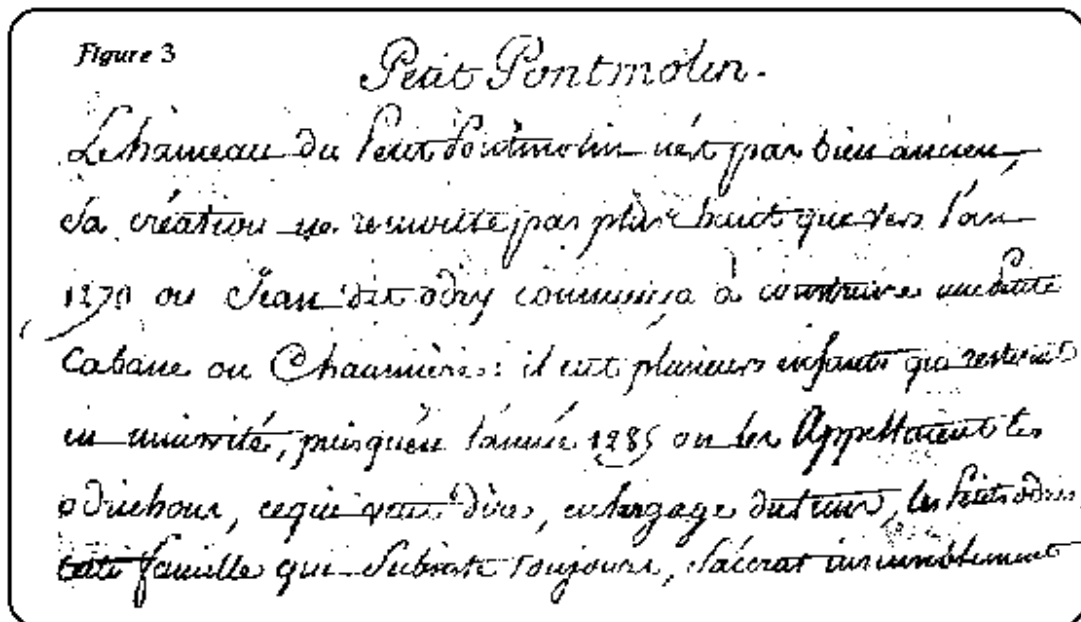 Figure 3
Petit Pontmolin.
Le hameau du Petit Pontmolin n'est pas bien ancien,
Sa création ne remonte pas plus haut que vers l'an
1270 ou Jean dit odry commença à construire une Petite
Cabane ou Chaumière: il eut plusieurs enfants qui resterent
en minorité, puisqu'en l'année 1285 on les Appellaient les
odrichous, ce qui veut dire, en langage du tems, les Petits odris
cette famille qui Subsiste toujours, S'accrut insensiblement